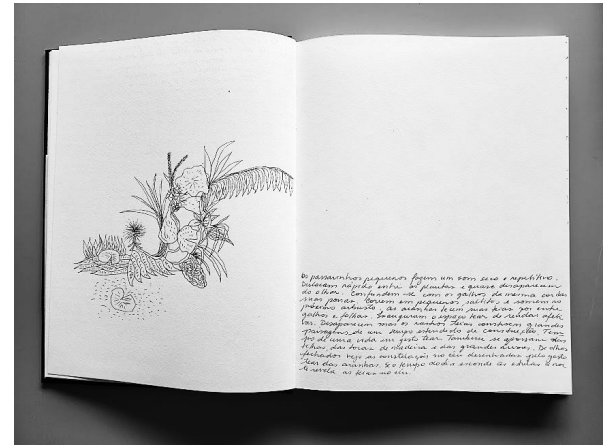 Os passarinhos pequenos fazem um som seco e repetitivo.
Deslocam rápido entre as plantas e quase desaparecem
do olhar. Confundem-se com os galhos da mesma cor das
suas penas. Correm em pequenos saltitos e somem no
próximo arbusto, as aranhas tecem suas teias por entre
galhos e folhas. Inauguram o espaço tear de rendar afeti
vas. Desaparecem mas os ranhos teias constroem grandes
paisagens de um tempo estendido de construção. Tem
po de uma vida um gesto tear. Também se apossam das
telhas, das toras de madeira e das grandes árvores. De olhos
fechados vejo as constelações no céu desenhadas pelo gesto
tear das aranhas. Se o tempo do dia esconde as estrelas a noi
te revela as teias no céu.